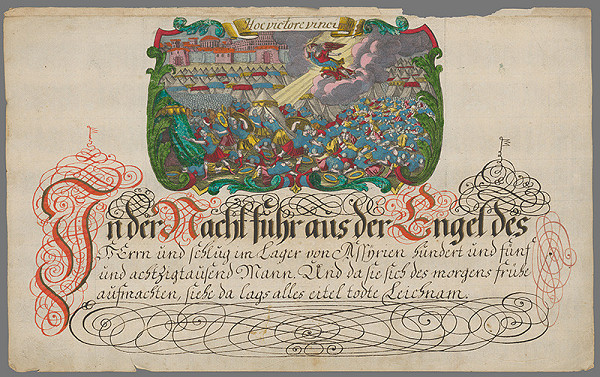 Hoc victore vinci
In der Nacht fuhr aus der Engel des
HErrn und schlug im Lager von Assyrien hundert und fünf
und achtzigtausend Mann. Und da sie sich des morgens frühe
aufmachten, siehe da lags alles eitel todte Leichnam.